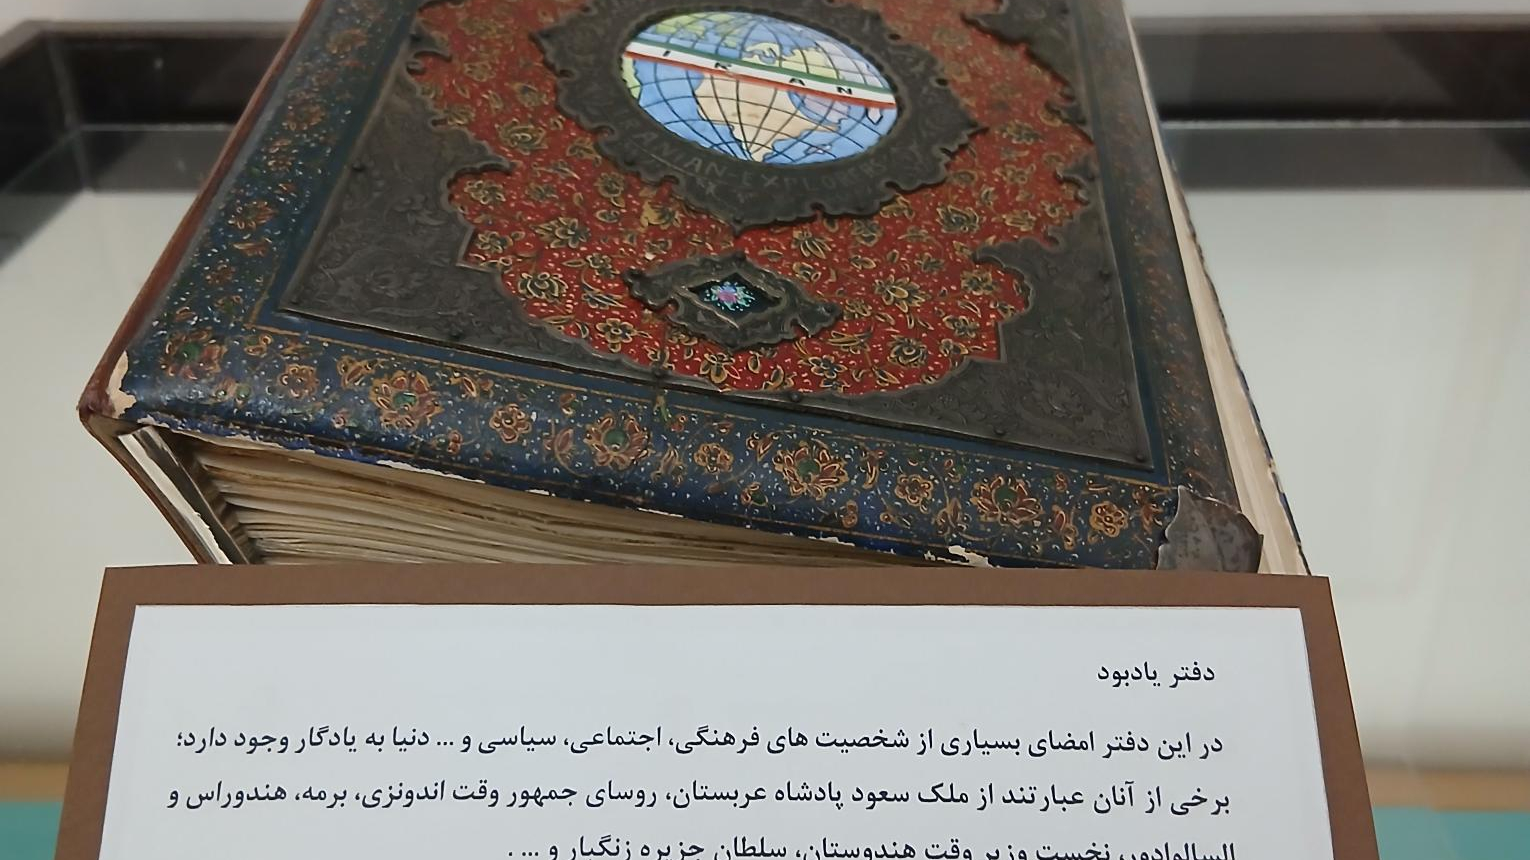 IRAN
IRANIAN EXPLORERS
دفتر یادبود
در این دفتر امضای بسیاری از شخصیت های فرهنگی، اجتماعی، سیاسی و ... دنیا به یادگار وجود دارد؛
برخی از آنان عبارتند از ملک سعود پادشاه عربستان، روسای جمهور وقت اندونزی، برمه، هندوراس و
السالوادور، نخست وزیر وقت هندوستان، سلطان جزیره زنگبار و ... .